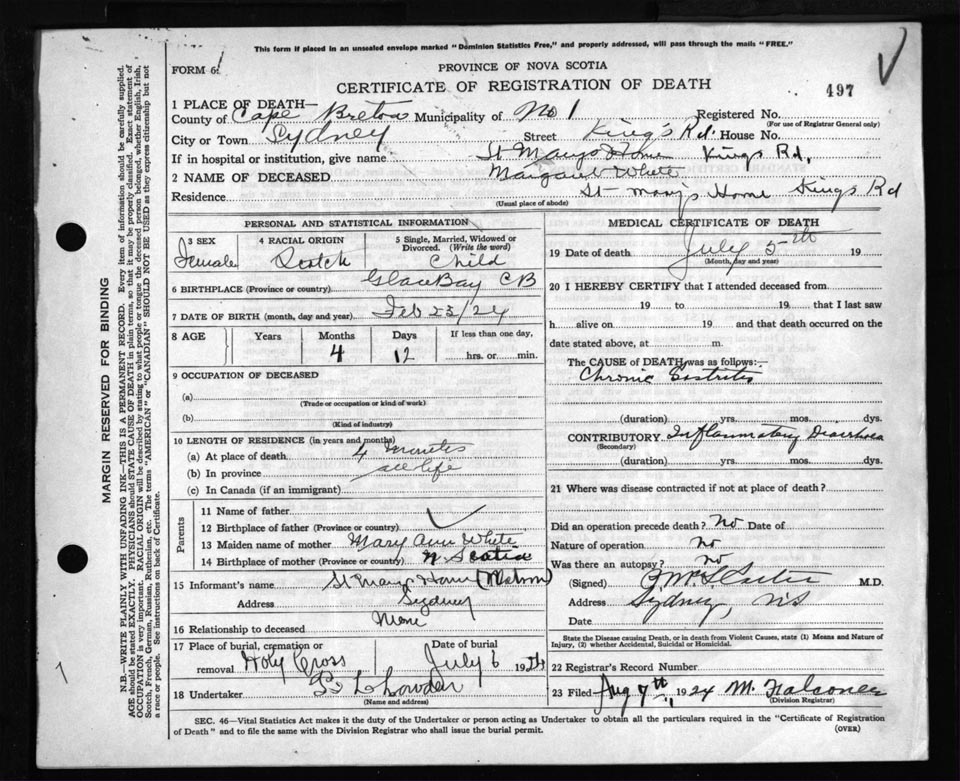 This form if placed in an unsealed envelope marked "Dominion Statistics Free," and properly addressed, will pass through the mails "FREE."
FORM 6
PROVINCE OF NOVA SCOTIA
CERTIFICATE OF REGISTRATION OF DEATH
497
1 PLACE OF DEATH—
County of Cape Breton Municipality of No 1 Registered No.
(For use of Registrar General only)
City or Town Sydney Street King's Rd. House No.
If in hospital or institution, give name St Marys Home Kings Rd,
2 NAME OF DECEASED Margaret White
Residence St Mary's Home Kings Rd
(Usual place of abode)
PERSONAL AND STATISTICAL INFORMATION
3 SEX 4 RACIAL ORIGIN 5 Single, Married, Widowed or Divorced. (Write the word)
Female Scotch Child
6 BIRTHPLACE (Province or country) Glace Bay CB
7 DATE OF BIRTH (month, day and year) Feb 23/24
8 AGE Years Months Days If less than one day,
4 12 hrs. or min.
9 OCCUPATION OF DECEASED
(a)
(Trade or occupation or kind of work)
(b)
(Kind of industry)
10 LENGTH OF RESIDENCE (in years and months)
(a) At place of death 4
(b) In province all life
(c) In Canada (if an immigrant)
Parents
11 Name of father
12 Birthplace of father (Province or country)
13 Maiden name of mother Mary Ann White
14 Birthplace of mother (Province or country) N. Scotia
15 Informant's name St Marys Home (Matron)
Address Sydney
16 Relationship to deceased None
17 Place of burial, cremation or Date of burial
removal Holy Cross July 6 1924
18 Undertaker
(Name and address)
MEDICAL CERTIFICATE OF DEATH
19 Date of death July 5th 19
(Month, day and year)
20 I HEREBY CERTIFY that I attended deceased from
19 to 19 , that I last saw
h alive on 19 and that death occurred on the
date stated above, at m.
The CAUSE of DEATH was as follows:—
Chronic Gastritis
(duration) yrs. mos. dys.
CONTRIBUTORY Inflammatory Diarrhoea
(Secondary)
(duration) yrs. mos. dys.
21 Where was disease contracted if not at place of death?
Did an operation precede death? No Date of
Nature of operation no
Was there an autopsy? no
(Signed) M.D.
Address Sydney, NS
Date
State the Disease causing Death, or in death from Violent Causes, state (1) Means and Nature of
Injury, (2) whether Accidental, Suicidal or Homicidal.
22 Registrar's Record Number
23 Filed Aug 7th 1924 M. Falconer
(Division Registrar)
SEC. 46—Vital Statistics Act makes it the duty of the Undertaker or person acting as Undertaker to obtain all the particulars required in the "Certificate of Registration
of Death" and to file the same with the Division Registrar who shall issue the burial permit.
(OVER)
MARGIN RESERVED FOR BINDING
N.B.—WRITE PLAINLY WITH UNFADING INK—THIS IS A PERMANENT RECORD. Every item of information should be carefully supplied.
AGE should be stated EXACTLY. PHYSICIANS should STATE CAUSE OF DEATH in plain terms, so that it may be properly classified. Exact statement of
OCCUPATION is very important. RACIAL ORIGIN will be described by stating to what people or tongue the deceased person belonged, whether English, Irish,
Scotch, French, German, Russian, Ruthenian, etc. The terms "AMERICAN" or "CANADIAN" SHOULD NOT BE USED as they express citizenship but not
a race or people. See instructions on back of Certificate.